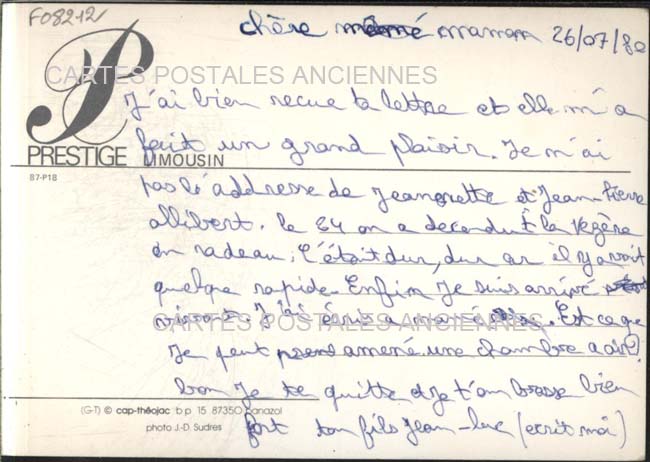 F08212
chère mémé maman 26/07/80
CARTES POSTALES ANCIENNES
J'ai bien recue ta lettre et elle m'a
fait un grand plaisir. Je m'ai
PRESTIGE LIMOUSIN
87-P18
pas l'addresse de Jeannette et Jean-Pierre
allibert. le 24 on a decendu la Vezère
en radeau, C'était dur, dur car il y avait
quelque rapide. Enfin Je suis arrivé
vivant. J'ai écris a mamé. Est ce que
CARTES POSTALES ANCIENNES
Je peut amené une chambre a air?
bon Je te quitte et je t'ambrasse bien
(G-T) © cap-théojac b.p. 15 87350 panazol
photo J.-D. Sudres
fort ton fils Jean-luc (ecrit moi)